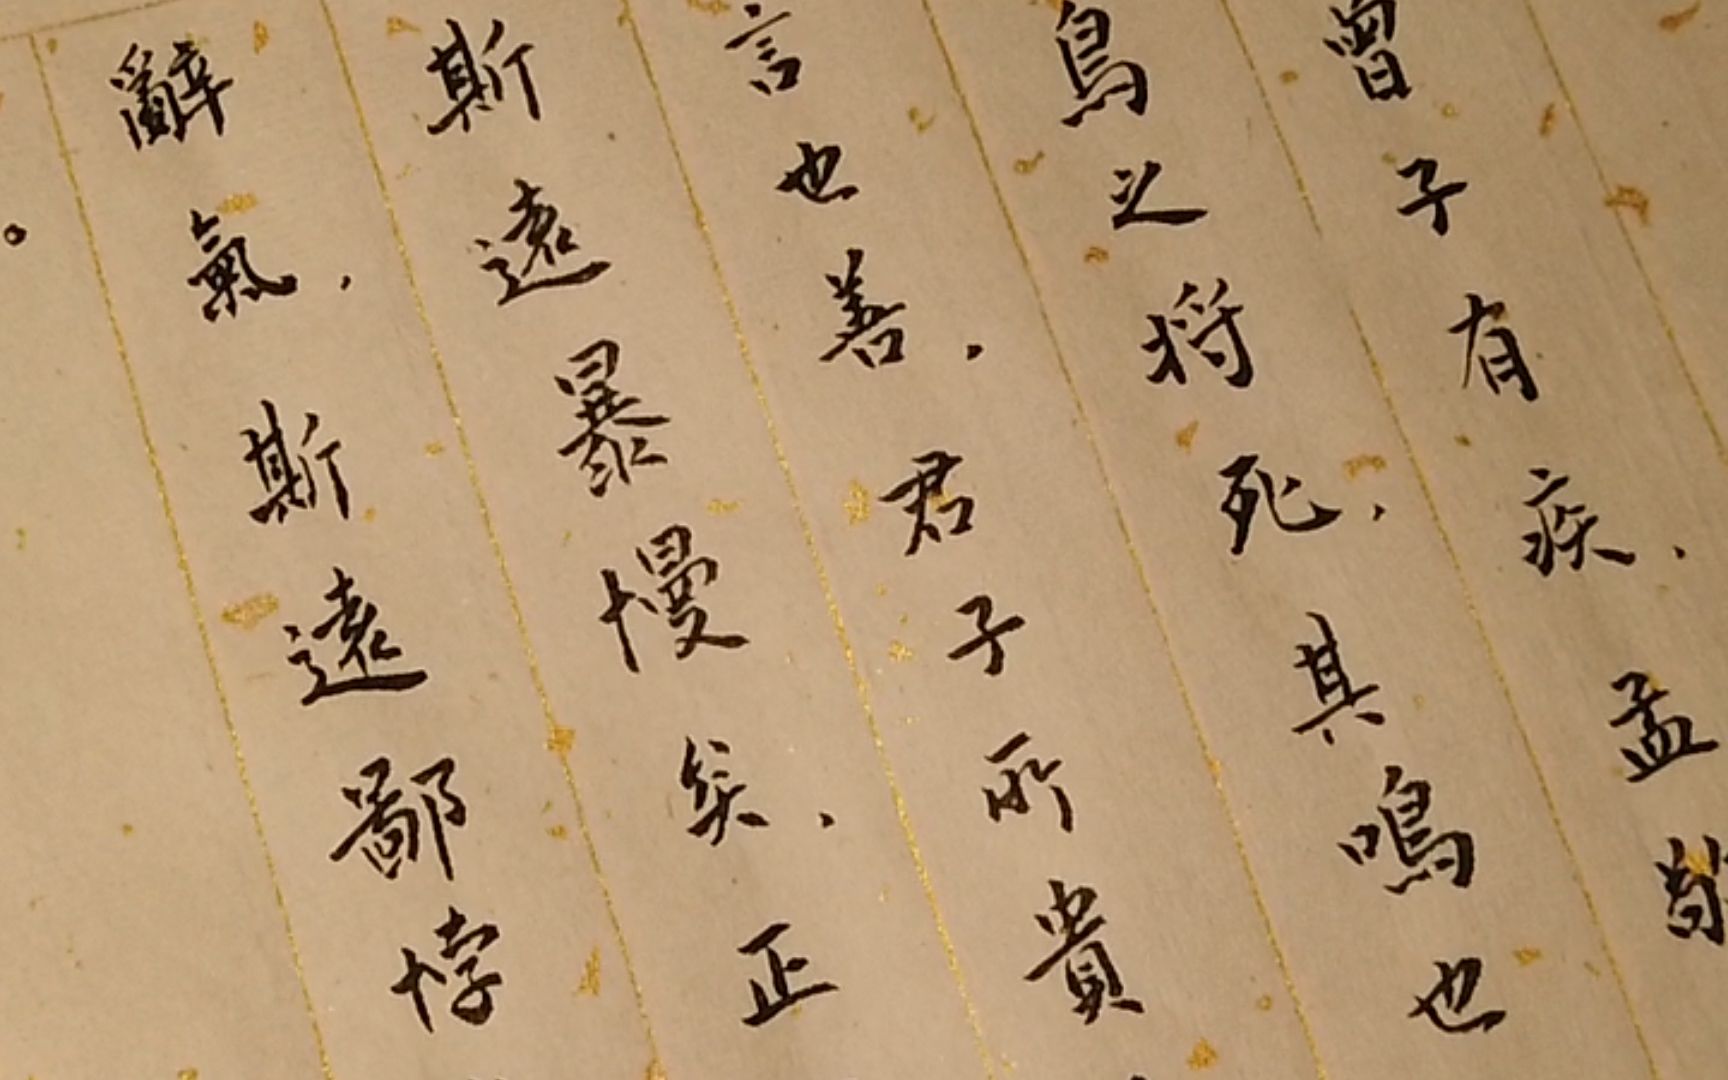 曾子有疾，孟敬
鳥之将死，其鳴也
言也善，君子所貴
斯遠暴慢矣，正
辭氣，斯遠鄙悖
。